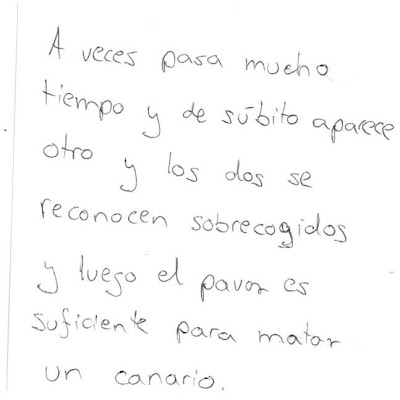 A veces pasa mucho
tiempo y de súbito aparece
otro y los dos se
reconocen sobrecogidos
y luego el pavor es
suficiente para matar
un canario.